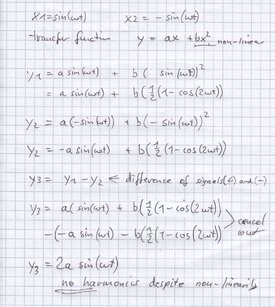 x1 = sin(ωt)   x2 = − sin(ωt)
transfer function   y = ax + bx²   non-linear
y1 = a sin(ωt) + b( sin(ωt))²
= a sin(ωt) + b(½(1−cos(2ωt))
y2 = a(−sin(ωt)) + b(−sin(ωt))²
y2 = −a sin(ωt) + b(½(1−cos(2ωt))
y3 = y1 − y2 ← difference of signals (+) and (−)
y3 = a( sin(ωt) + b(½(1−cos(2ωt))
−(−a sin(ωt) − b(½(1−cos(2ωt))
cancel out
y3 = 2a sin(ωt)
no harmonics despite non-linearity